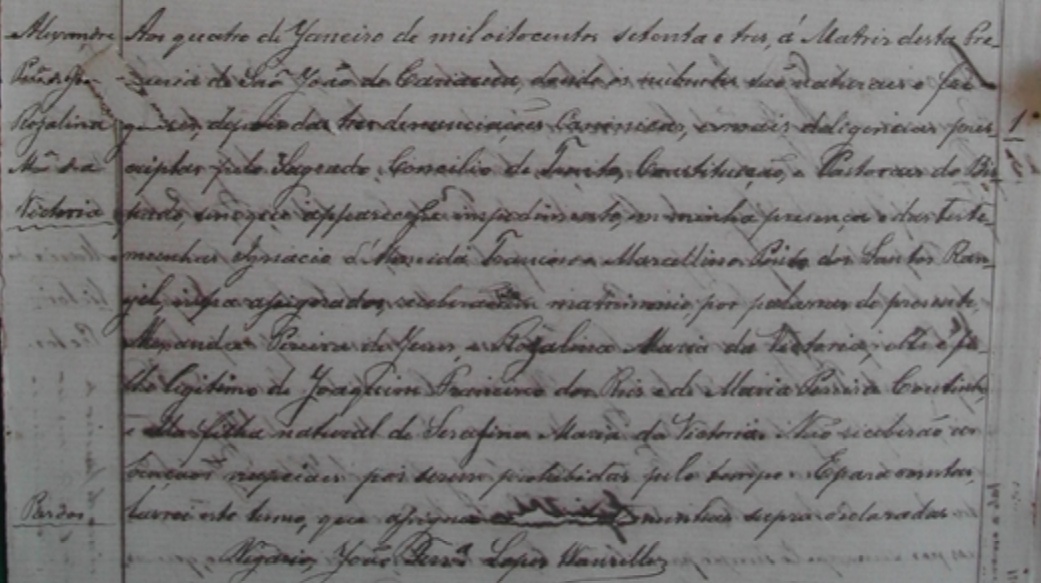 Alexandre
Rosalina
Victoria
Pardos
Aos quatro de Janeiro de mil oitocentos setenta e tres, á Matriz desta Fre-
guezia de São João de Cariacica, donde os nubentes são naturaes e fre-
guezes, depois das tres denunciações Canonicas, e mais diligencias pres-
criptas pelo Sagrado Concilio de Trento, Constituição, e Pastoraes do Bis-
pado, sem que apparecesse impedimento, em minha presença e das teste-
munhas Ignacio d'Almeida Francisco e Marcellino Pinto dos Santos Ran-
gel, infra assignados, receberão em matrimonio, por palavras de presente
Alexandre Pereira de Jesus, e Rosalina Maria da Victoria; elle é fi-
lho legitimo de Joaquim Francisco dos Reis e de Maria Pereira Coutinho
e ella filha natural de Serafina Maria da Victoria. Não receberão as
bençãos nupciaes por serem prohibidas pelo tempo. E para constar
lavrei este termo, que assigno munhas supra declaradas
Vigario João Lopes
1